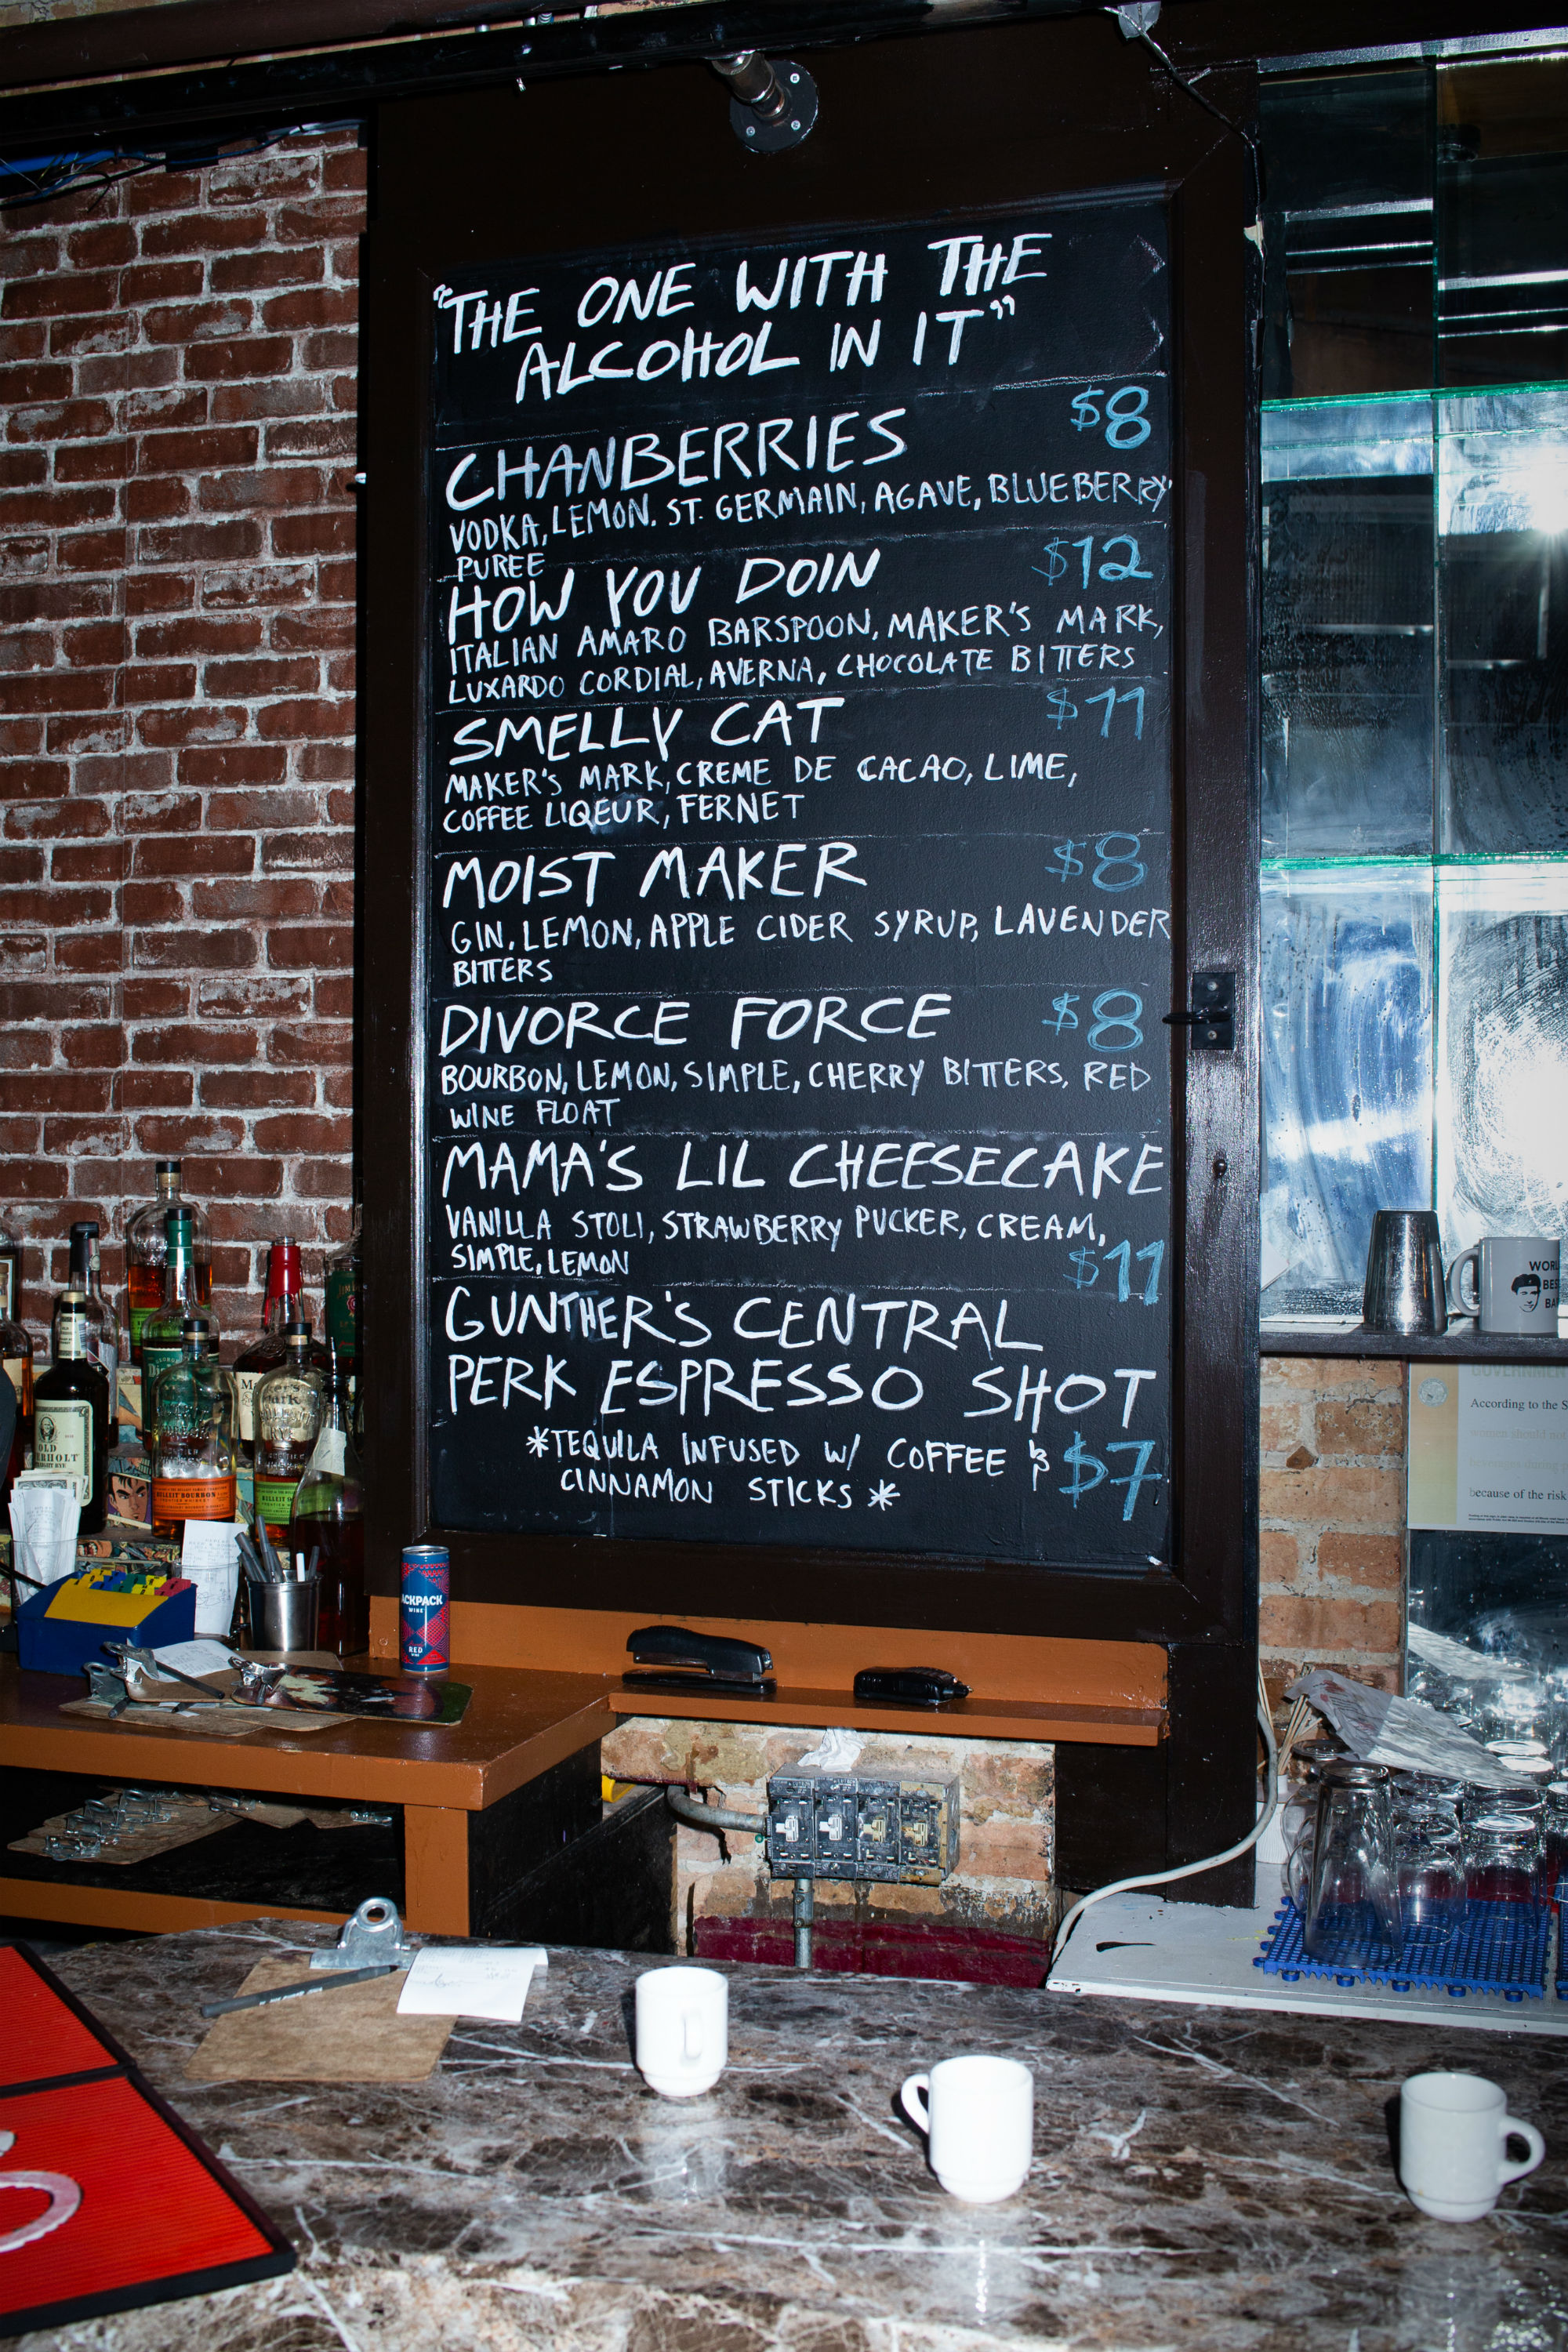 "THE ONE WITH THE
ALCOHOL IN IT"
CHANBERRIES $8
VODKA, LEMON. ST. GERMAIN, AGAVE, BLUEBERRY
PUREE
HOW YOU DOIN $12
ITALIAN AMARO BARSPOON, MAKER'S MARK,
LUXARDO CORDIAL, AVERNA, CHOCOLATE BITTERS
SMELLY CAT $11
MAKER'S MARK, CREME DE CACAO, LIME,
COFFEE LIQEUR, FERNET
MOIST MAKER $8
GIN, LEMON, APPLE CIDER SYRUP, LAVENDER
BITTERS
DIVORCE FORCE $8
BOURBON, LEMON, SIMPLE, CHERRY BITTERS, RED
WINE FLOAT
MAMA'S LIL CHEESECAKE
VANILLA STOLI, STRAWBERRY PUCKER, CREAM,
SIMPLE, LEMON $11
GUNTHER'S CENTRAL
PERK ESPRESSO SHOT
*TEQUILA INFUSED W/ COFFEE & $7
CINNAMON STICKS *
OLD
BULLEIT BOURBON
ACKPACK
WINE
RED
WORL
BE
BA
GOVERNMEN
According to the S
women should not
because of the risk